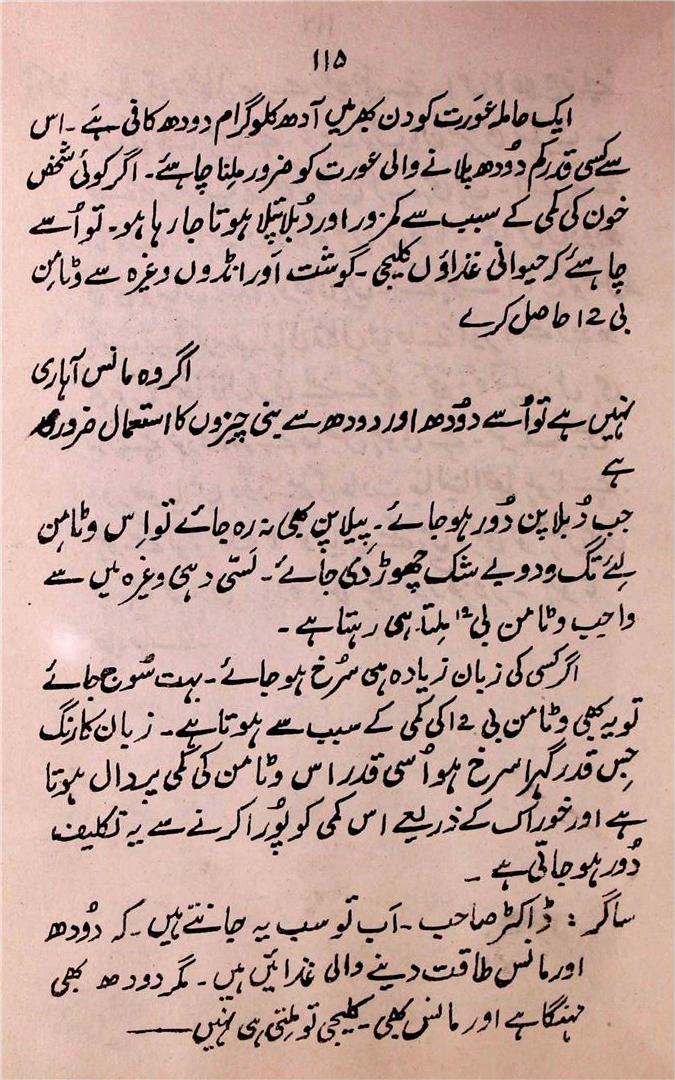 ۱۱۵
ایک حاملہ عورت کو دن بھر میں آدھ کلو گرام دودھ کافی ہے ۔ اس
سے کسی قدر کم دُودھ پلانے والی عورت کو ضرور مِلنا چاہئے۔ اگر کوئی شخص
خون کی کمی کے سبب سے کمزور اور دُبلا پتلا ہوتا جا رہا ہو۔ تو اُسے
چاہئے کہ حیوانی غذاؤں کلیجی ۔ گوشت اور انڈروں وغیرہ سے وٹامِن
بی 12 حاصل کرے
اگر وہ مانس آہاری
نہیں ہے تو اُسے دوُدھ اور دودھ سے بنی چیزوں کا استعمال ضروری
ہے
جب دُبلا پن دُور ہو جائے۔ پیلا پن بھی نہ رہ جائے تو اِس وٹامِن
لئے تگ و دو بے شک چھوڑ دی جائے۔ لسّی دہی وغیرہ میں سے
واجب وٹامن بی ۱۲ مِلتا ہی رہتا ہے ۔
اگر کسی کی زبان زیادہ ہی سُرخ ہو جائے ۔ بہت سُوج جائے
تو یہ بھی وٹامن بی 12 کی کمی کے سبب سے ہوتا ہے۔ زبان کا رنگ
جِس قدر گہرا سرخ ہو اُسی قدر اس وٹامن کی کمی پر دال ہوتا
ہے اور خوراک کے ذریعے اس کمی کو پُورا کرنے سے یہ تکلیف
دُور ہو جاتی ہے ۔
ساگر : ڈاکٹر صاحب ۔ اَب تو سب یہ جانتے ہیں ۔ کہ دُودھ
اور مانس طاقت دینے والی غذائیں ہیں ۔ مگر دودھ بھی
مہنگا ہے اور مانس بھی ۔ کلیجی تو مِلتی ہی نہیں ——